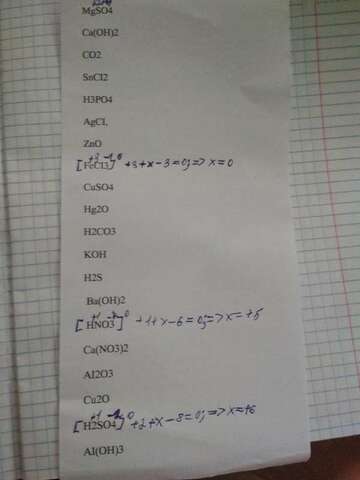 MgSO4
Ca(OH)2
CO2
SnCl2
H3PO4
AgCl,
ZnO
[FeCl3]⁰ +3+x-3=0; => x=0
CuSO4
Hg2O
H2CO3
KOH
H2S
Ba(OH)2
[HNO3]⁰ +1+x-6=0; => x=+5
Ca(NO3)2
Al2O3
Cu2O
[H2SO4]⁰ +2+x-8=0; => x=+6
Al(OH)3